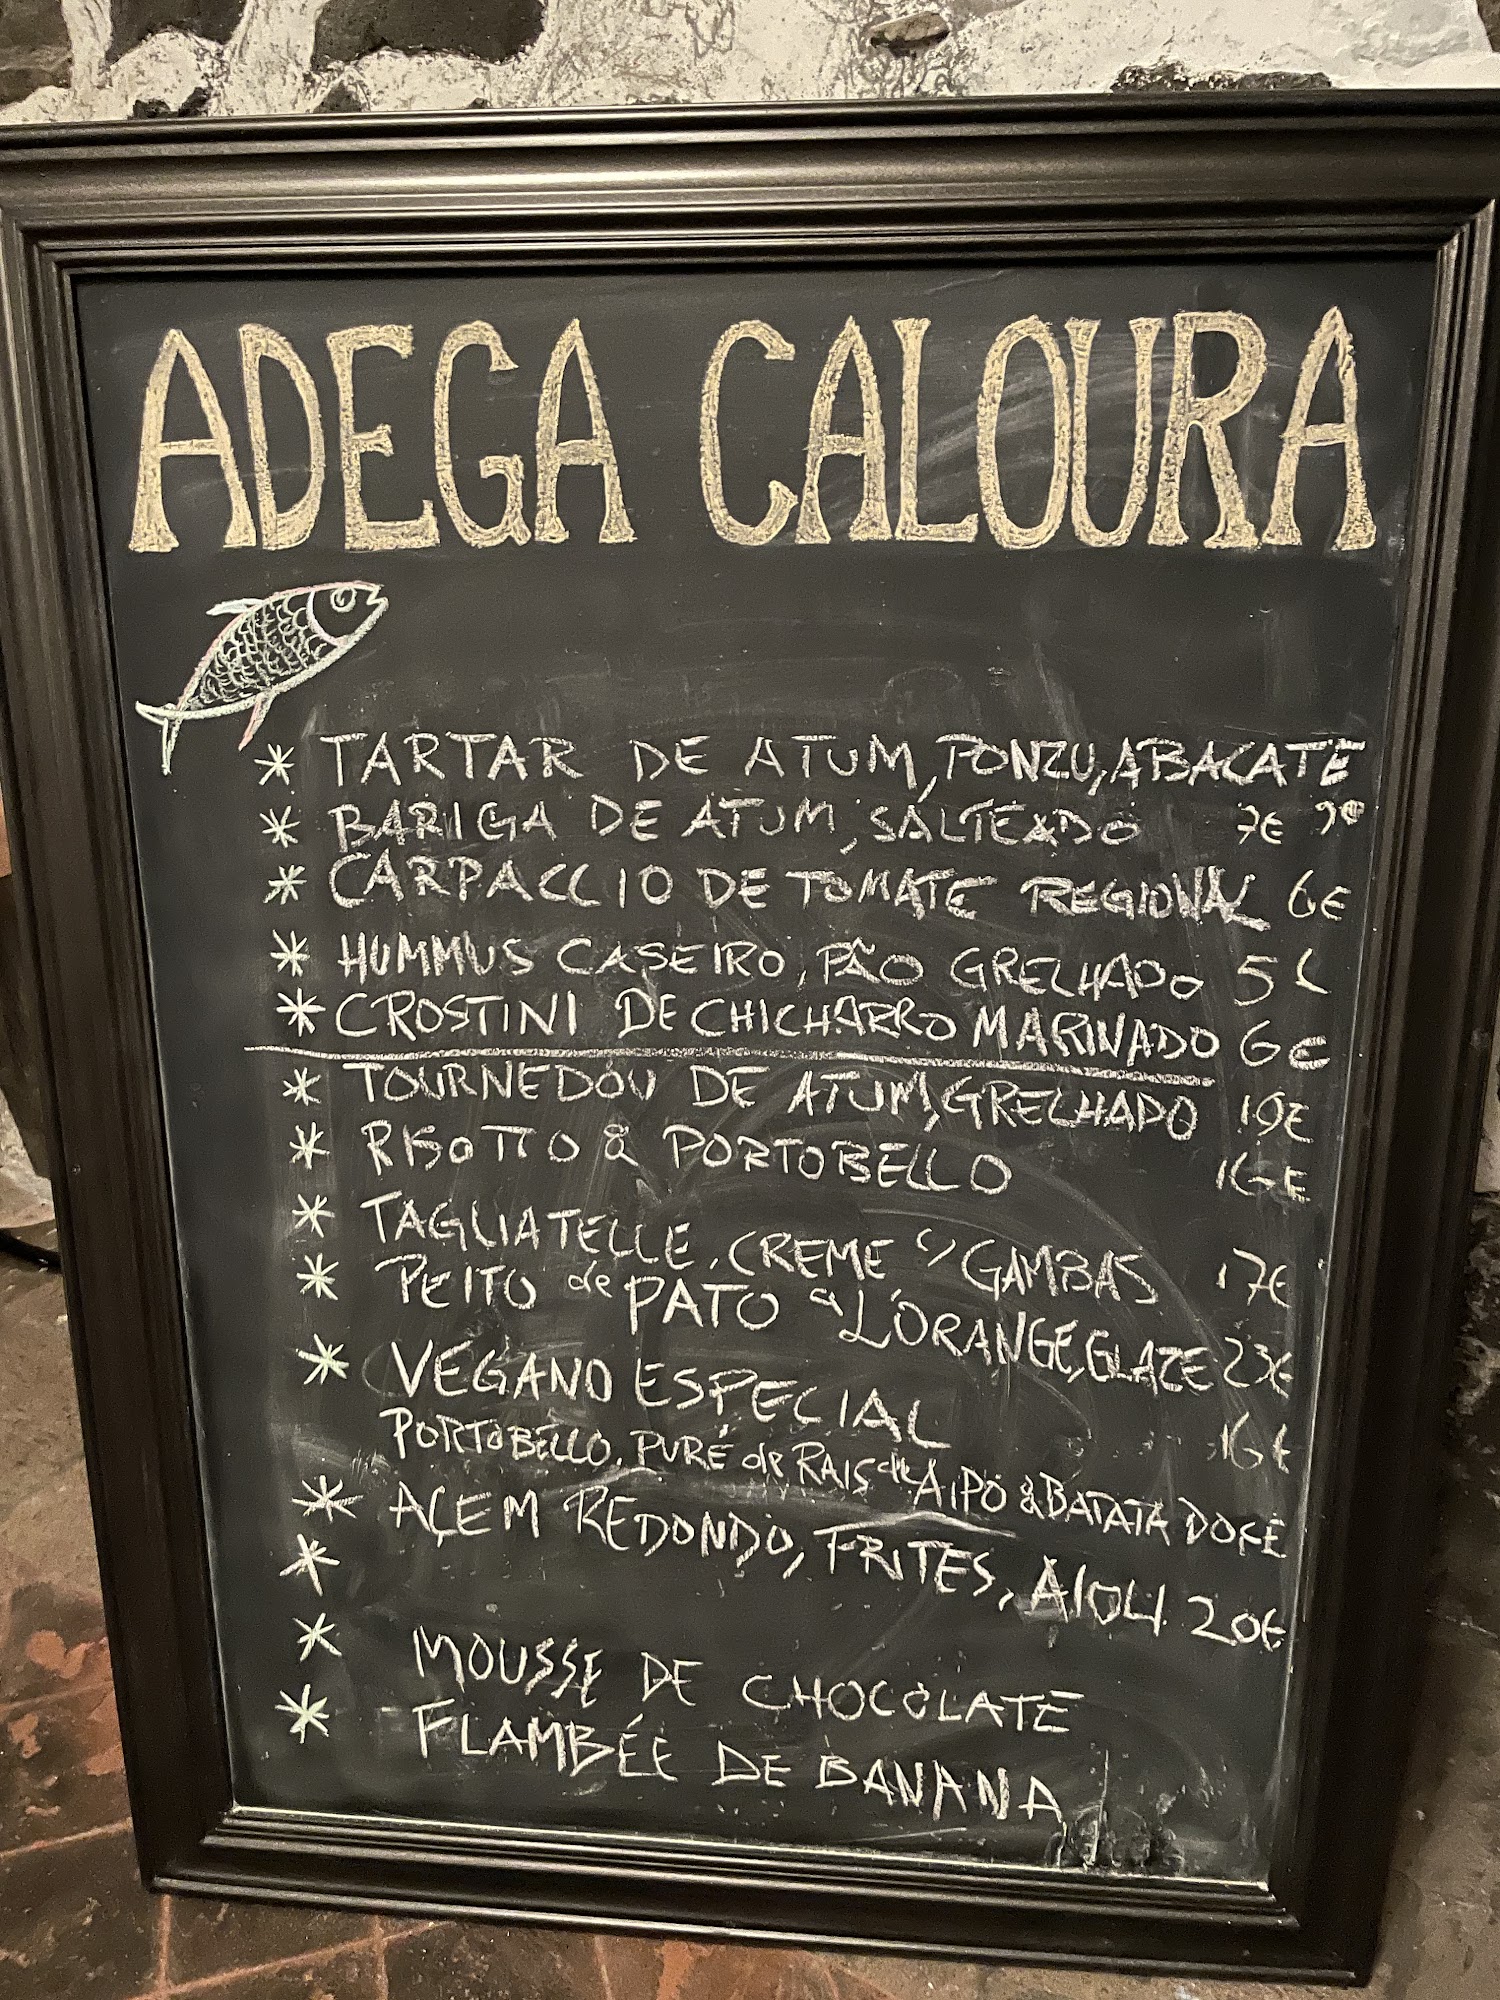 ADEGA CALOURA
* TARTAR DE ATUM, PONZU, ABACATE
* BARIGA DE ATUM, SALTEADO 7€ 9€
* CARPACCIO DE TOMATE REGIONAL 6€
* HUMMUS CASEIRO, PÃO GRELHADO 5€
* CROSTINI DE CHICHARRO MARINADO 6€
* TOURNEDOU DE ATUM, GRELHADO 19€
* RISOTTO & PORTOBELLO 16€
* TAGLIATELLE, CREME C/ GAMBAS 17€
* PEITO de PATO a L'ORANGE, GLAZE 23€
* VEGANO ESPECIAL 16€
PORTOBELLO, PURÉ de RAIS de AIPO & BATATA DOCE
* AÇEM REDONDO, FRITES, AIOLI 20€
*
* MOUSSE DE CHOCOLATE
* FLAMBÉE DE BANANA